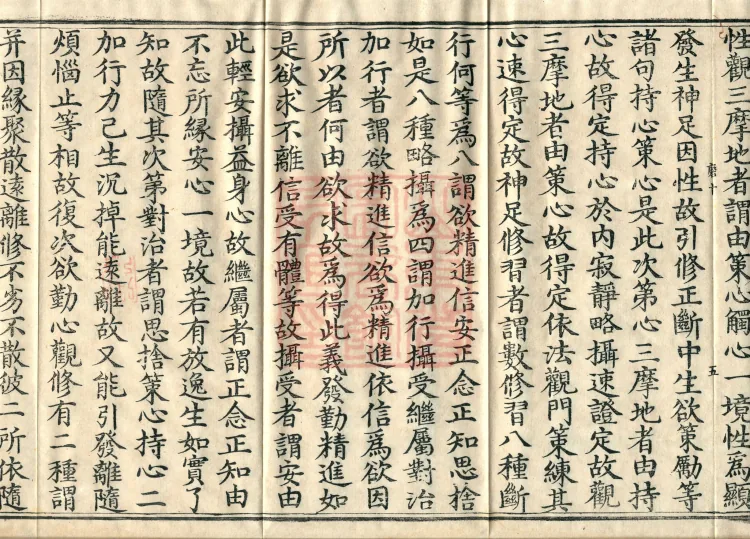 性觀三摩地者謂由策心觸心一境性爲顯
發生神足因性故引修正斷中生欲策勵等
諸句持心策心是此次第心三摩地者由持
心故得定持心於內寂靜略攝速證定故觀
三摩地者由策心故得定依法觀門策練其
心速得定故神足修習者謂數修習八種斷
行何等爲八謂欲精進信安正念正知思捨
如是八種略攝爲四謂加行攝受繼屬對治
加行者謂欲精進信欲爲精進依信爲欲因
所以者何由欲求故爲得此義發勤精進如
是欲求不離信受有體等故攝受者謂安由
此輕安攝益身心故繼屬者謂正念正知由
不忘所緣安心一境故若有放逸生如實了
知故隨其次第對治者謂思捨策心持心二
加行力已生沉掉能遠離故又能引發離隨
煩惱止等相故復次欲勤心觀修有二種謂
并因緣聚散遠離修不劣不散彼二所依隨
磨十
五